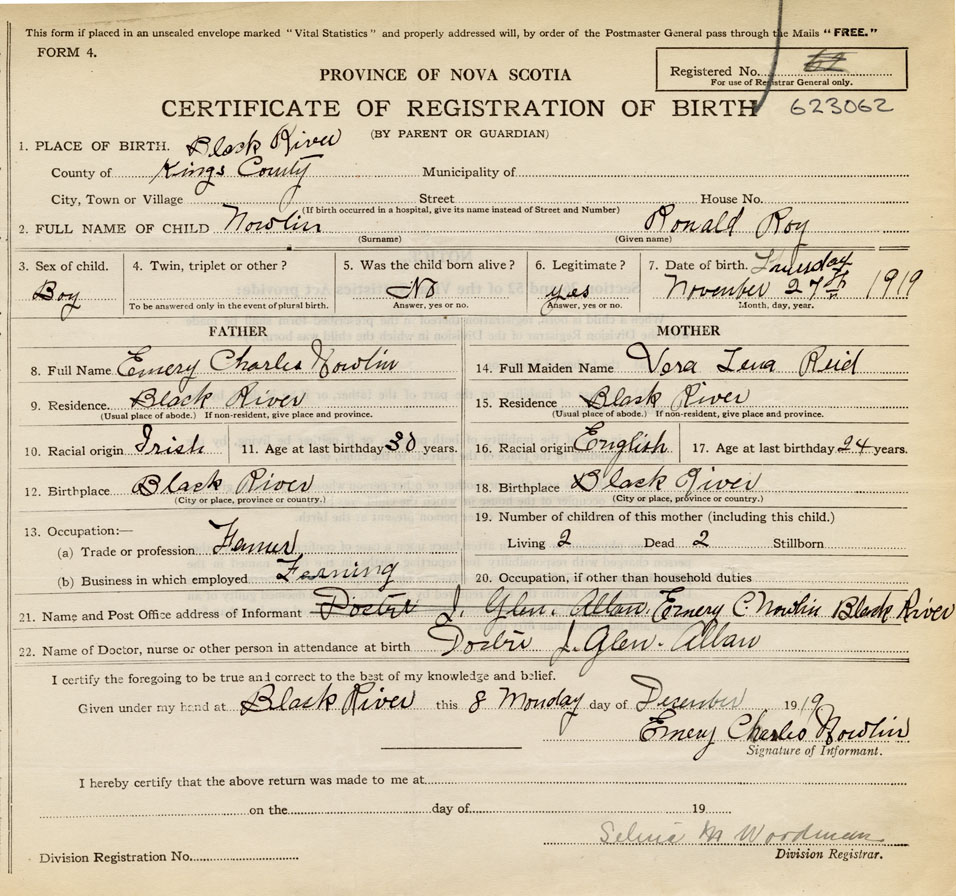 This form if placed in an unsealed envelope marked "Vital Statistics" and properly addressed will, by order of the Postmaster General pass through the Mails "FREE."
FORM 4.
PROVINCE OF NOVA SCOTIA
Registered No. 62
For use of Registrar General only.
CERTIFICATE OF REGISTRATION OF BIRTH 623062
(BY PARENT OR GUARDIAN)
1. PLACE OF BIRTH. Black River
County of Kings County Municipality of
City, Town or Village Street House No.
(If birth occurred in a hospital, give its name instead of Street and Number)
2. FULL NAME OF CHILD Nowlin Ronald Roy
(Surname) (Given name)
3. Sex of child. 4. Twin, triplet or other? 5. Was the child born alive? 6. Legitimate? 7. Date of birth. Thursday
Boy No yes November 27th 1919
To be answered only in the event of plural birth. Answer, yes or no. Answer, yes or no. Month, day, year.
FATHER MOTHER
8. Full Name Emery Charles Nowlin 14. Full Maiden Name Vera Lena Reid
9. Residence. Black River 15. Residence Black River
(Usual place of abode.) If non-resident, give place and province. (Usual place of abode.) If non-resident, give place and province.
10. Racial origin Irish 11. Age at last birthday 30 years. 16. Racial origin English 17. Age at last birthday 24 years.
12. Birthplace Black River 18. Birthplace Black River
(City or place, province or country.) (City or place, province or country.)
13. Occupation:— 19. Number of children of this mother (including this child.)
(a) Trade or profession Farmer Living 2 Dead 2 Stillborn
(b) Business in which employed Farning 20. Occupation, if other than household duties
21. Name and Post Office address of Informant Doctor J. Glen. Allan. Emery C. Nowlin Black River
22. Name of Doctor, nurse or other person in attendance at birth Doctor J. Glen. Allan
I certify the foregoing to be true and correct to the best of my knowledge and belief.
Given under my hand at Black River this 8 Monday day of December 1919
Emery Charles Nowlin
Signature of Informant.
I hereby certify that the above return was made to me at
on the day of 19
M Woodman
Division Registration No. Division Registrar.